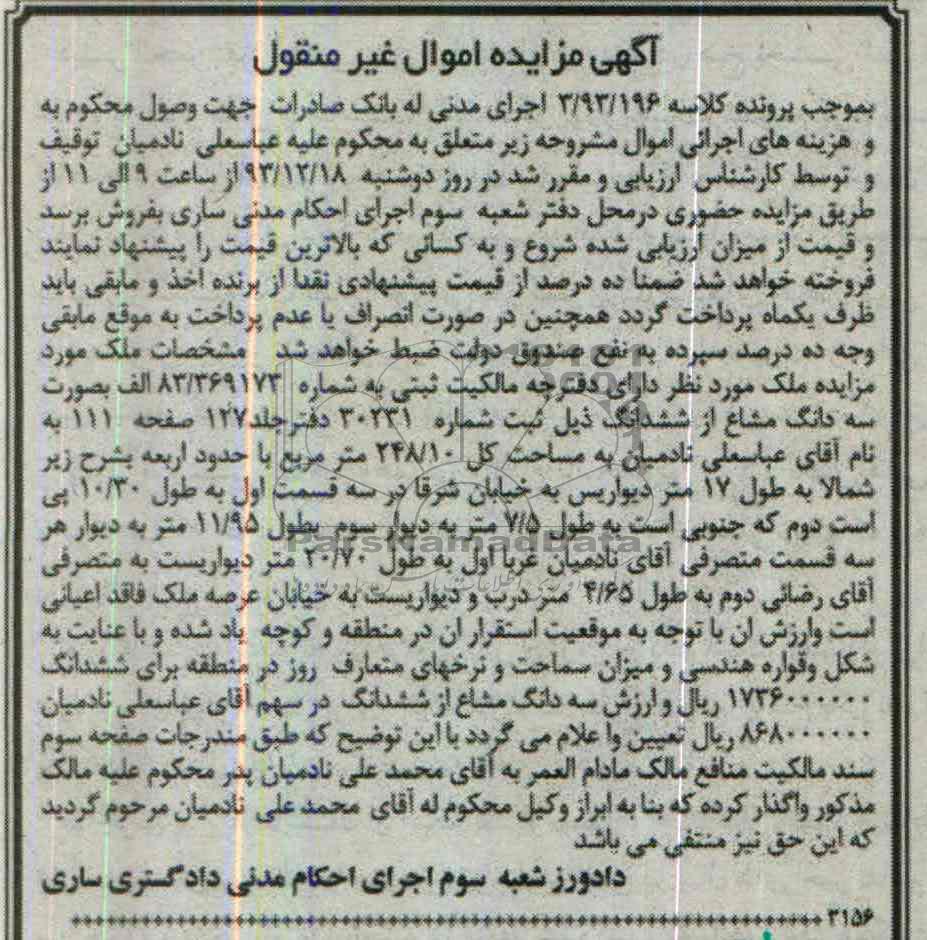 آگهی مزایده اموال غیر منقول
بموجب پرونده کلاسه ۳/۹۳/۱۹۶ اجرای مدنی له بانک صادرات جهت وصول محکوم به
و هزینه های اجرائی اموال مشروحه زیر متعلق به محکوم علیه عباسعلی نادمیان توقیف
و توسط کارشناس ارزیابی و مقرر شد در روز دوشنبه ۹۳/۱۲/۱۸ از ساعت ۹ الی ۱۱ از
طریق مزایده حضوری درمحل دفتر شعبه سوم اجرای احکام مدنی ساری بفروش برسد
و قیمت از میزان ارزیابی شده شروع و به کسانی که بالاترین قیمت را پیشنهاد نمایند
فروخته خواهد شد ضمنا ده درصد از قیمت پیشنهادی نقدا از برنده اخذ و مابقی باید
ظرف یکماه پرداخت گردد همچنین در صورت انصراف یا عدم پرداخت به موقع مابقی
وجه ده درصد سپرده به نفع صندوق دولت ضبط خواهد شد مشخصات ملک مورد
مزایده ملک مورد نظر دارای دفترچه مالکیت ثبتی به شماره ۸۳/۳۶۹۱۷۳ الف بصورت
سه دانگ مشاع از ششدانگ ذیل ثبت شماره ۳۰۲۳۱ دفترجلد۱۲۷ صفحه ۱۱۱ به
نام آقای عباسعلی نادمیان به مساحت کل ۲۴۸/۱۰ متر مربع با حدود اربعه بشرح زیر
شمالا به طول ۱۷ متر دیواریس به خیابان شرقا در سه قسمت اول به طول ۱۰/۳۰ پی
است دوم که جنوبی است به طول ۷/۵ متر به دیوار سوم بطول ۱۱/۹۵ متر به دیوار هر
سه قسمت متصرفی آقای نادمیان غربا اول به طول ۲۰/۷۰ متر دیواریست به متصرفی
آقای رضائی دوم به طول ۴/۶۵ متر درب و دیواریست به خیابان عرصه ملک فاقد اعیانی
است وارزش ان با توجه به موقعیت استقرار ان در منطقه و کوچه یاد شده و با عنایت به
شکل وقواره هندسی و میزان مساحت و نرخهای متعارف روز در منطقه برای ششدانگ
۱۷۳۶۰۰۰۰۰۰ ریال و ارزش سه دانگ مشاع از ششدانگ در سهم آقای عباسعلی نادمیان
۸۶۸۰۰۰۰۰۰ ریال تعیین وا علام می گردد با این توضیح که طبق مندرجات صفحه سوم
سند مالکیت منافع مالک مادام العمر به آقای محمد علی نادمیان پدر محکوم علیه مالک
مذکور واگذار کرده که بنا به ابراز وکیل محکوم له آقای محمد علی نادمیان مرحوم گردید
که این حق نیز منتفی می باشد
دادورز شعبه سوم اجرای احکام مدنی دادگستری ساری
۳۱۵۶
ParsNamadData